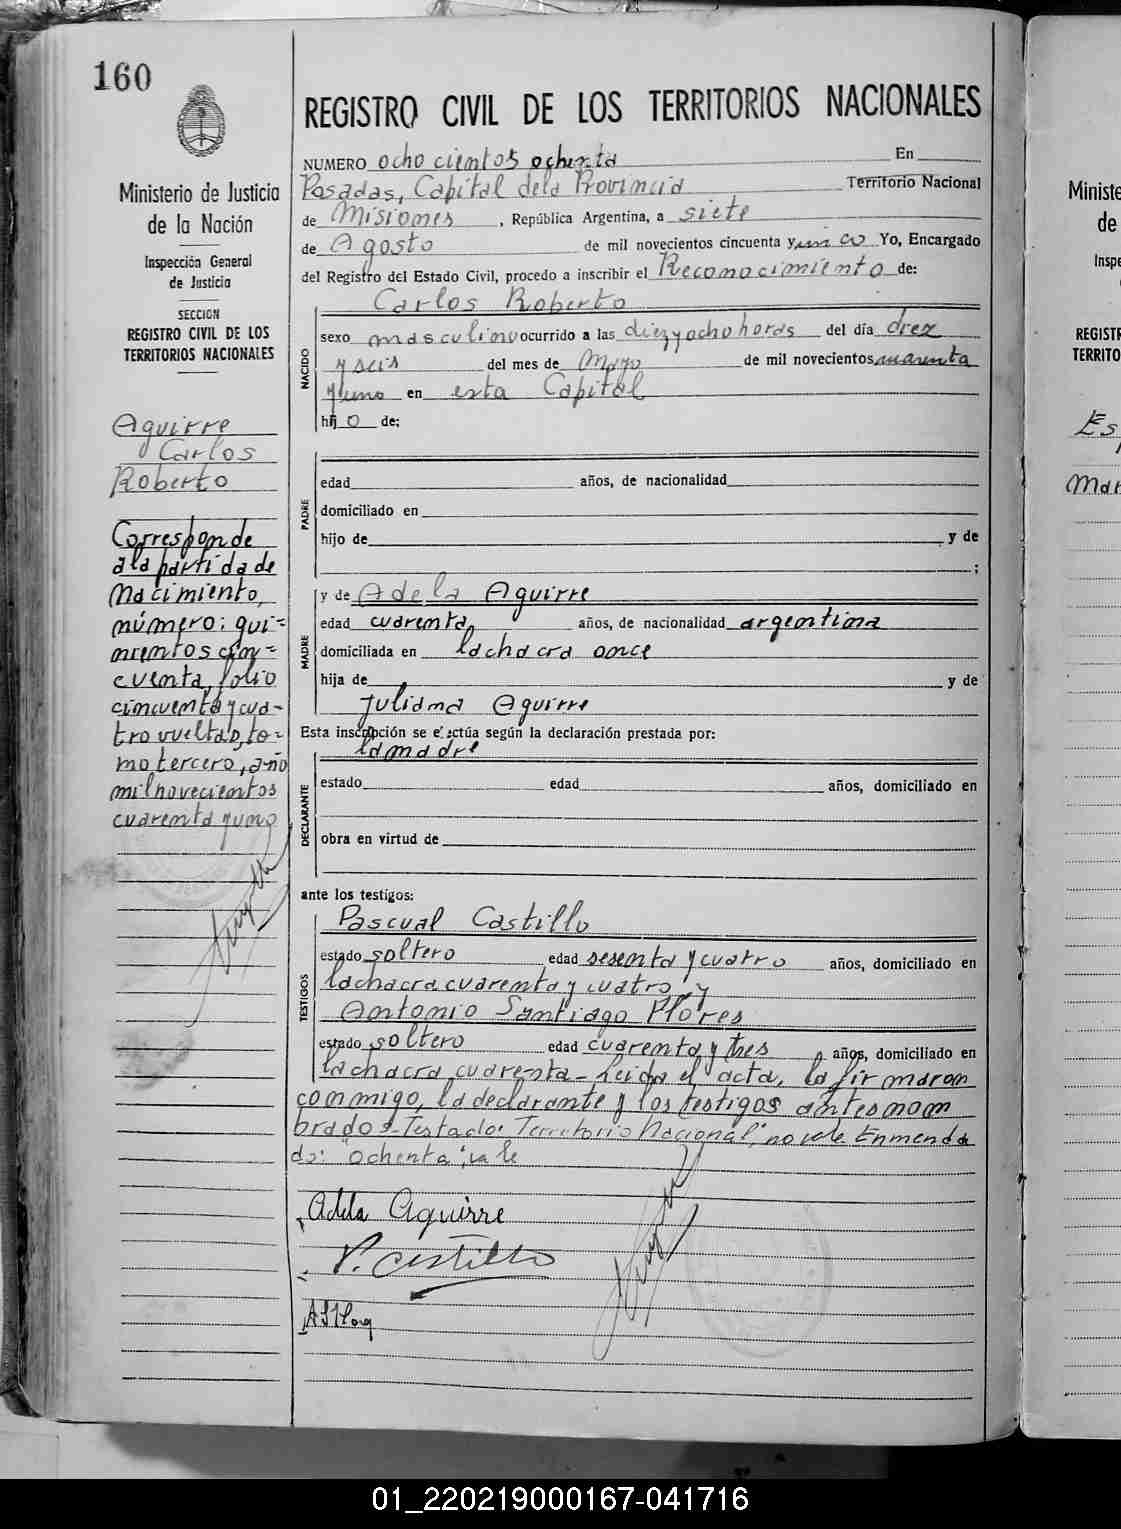 160
Ministerio de Justicia
de la Nación
Inspección General
de Justicia
SECCION
REGISTRO CIVIL DE LOS
TERRITORIOS NACIONALES
Aguirre
Carlos
Roberto
Corresponde
a la partida de
Nacimiento,
número: qui=
nientos cin=
cuenta, folio
cincuenta y cua-
tro vueltas, to=
mo tercero, año
mil novecientos
cuarenta y uno
REGISTRO CIVIL DE LOS TERRITORIOS NACIONALES
NUMERO ocho cientos ochenta En
Posadas, Capital dela Provincia Territorio Nacional
de Misiones, República Argentina, a siete
de Agosto de mil novecientos cincuenta y Yo, Encargado
del Registro del Estado Civil, procedo a inscribir el Reconocimiento de:
Carlos Roberto
NACIDO
sexo masculino ocurrido a las diez y ocho horas del día diez
y seis del mes de Mayo de mil novecientos cuarenta
y uno en esta Capital
hijo de:
PADRE
edad años, de nacionalidad
domiciliado en
hijo de y de
;
MADRE
y de Adela Aguirre
edad cuarenta años, de nacionalidad argentina
domiciliada en lachacra once
hija de y de
Juliana Aguirre
Esta inscripción se efectúa según la declaración prestada por:
lamadre
DECLARANTE
estado edad años, domiciliado en
obra en virtud de
ante los testigos:
TESTIGOS
Pascual Castillo
estado soltero edad sesenta y cuatro años, domiciliado en
lachacra cuarenta y cuatro, y
Antonio Santiago Flores
estado soltero edad cuarenta y tres años, domiciliado en
lachacra cuarenta - Leida el acta, la firmaron
conmigo, la declarante y los testigos antes nom
brados - Testado: "Territorio Nacional," no vale Enmenda
do: "ochenta", vale
Adela Aguirre
P. Castillo
Ministe
de
Inspe
REGISTR
TERRITO
Es
Mar
01_220219000167-041716